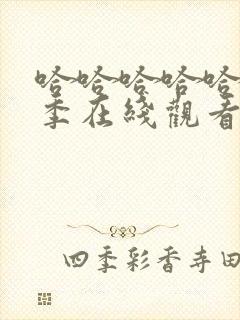 哈哈哈哈哈
季在綫觀看
四季彩香寺田